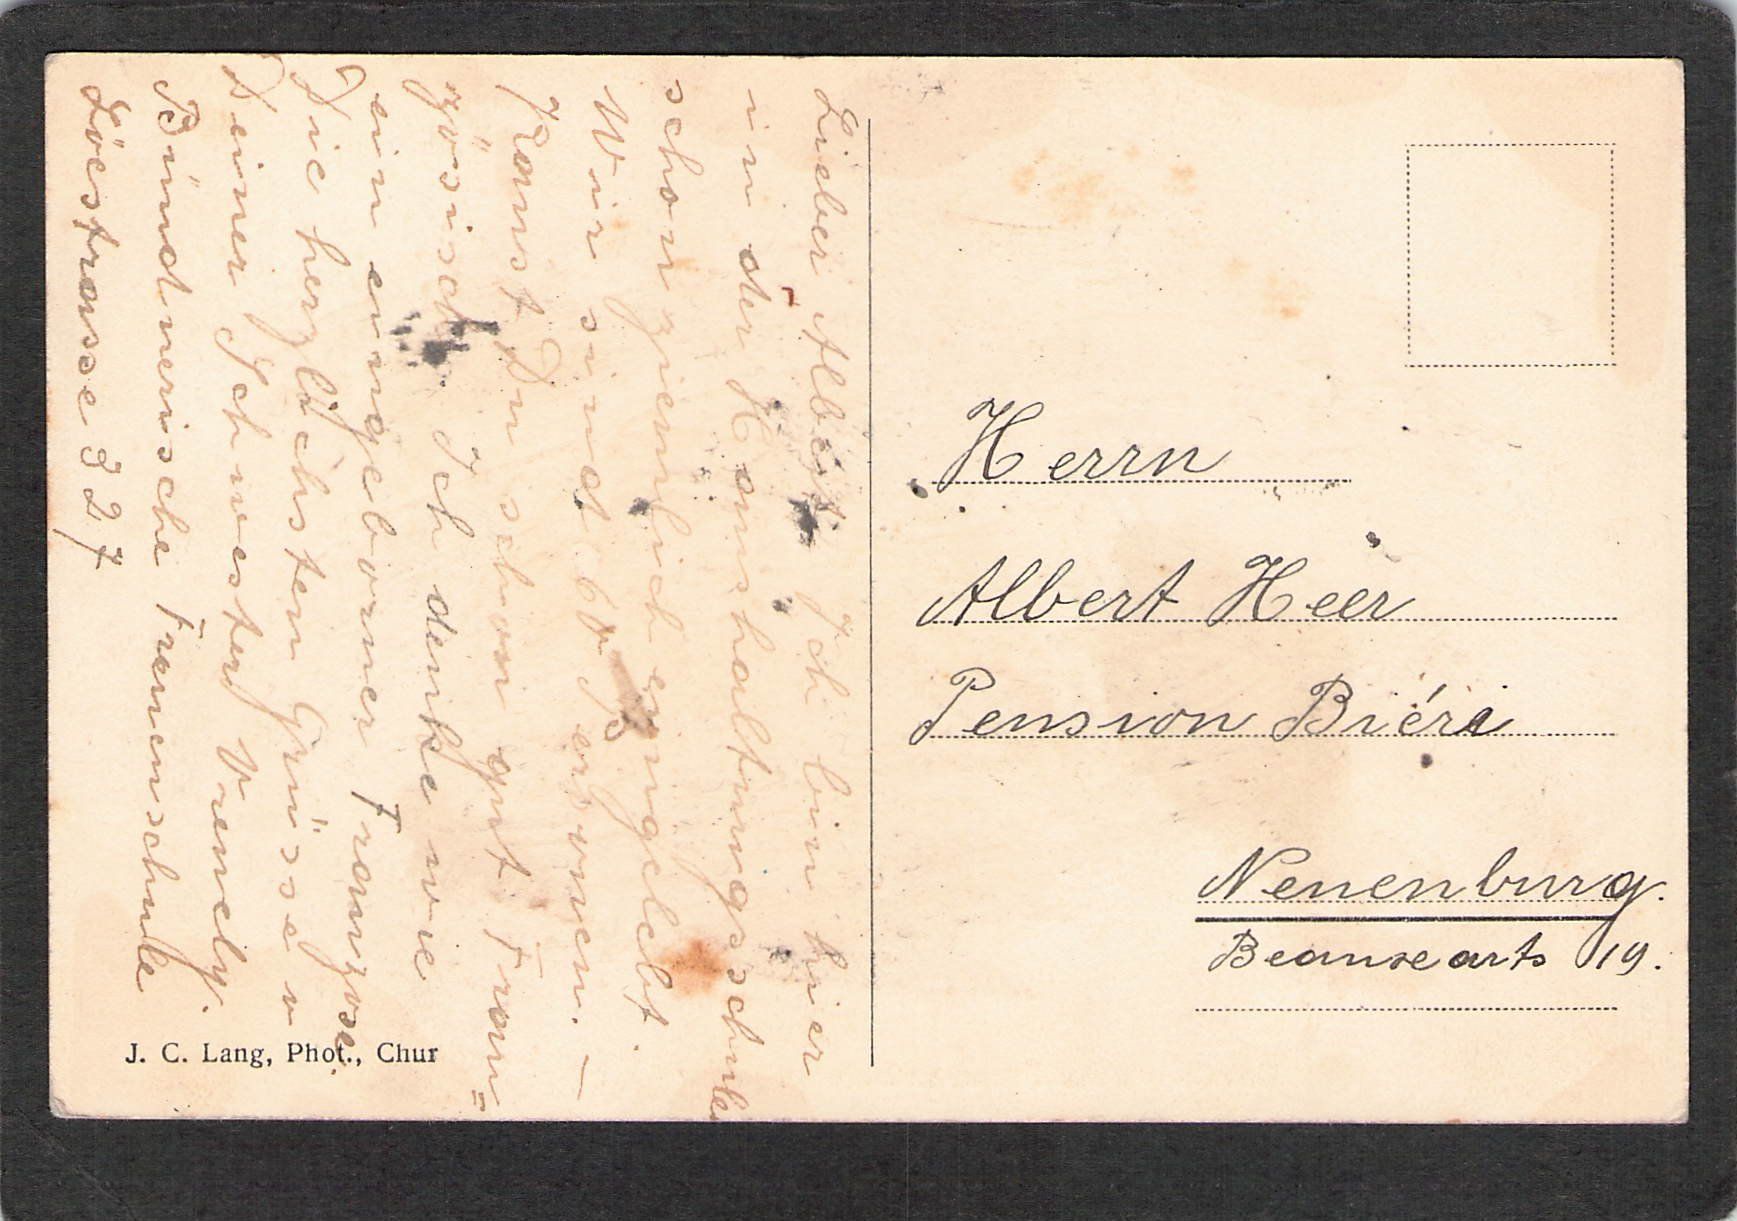 Lieber Albert! Ich bin hier
in der Haushaltungsschule
schon ziemlich eingelebt.
Wir sind 60 Personen. –
Kannst Du schon gut Fran=
zösisch Ich denke wie
ein eingeborner Franzose.
Die herzlichsten Grüsse v
Deiner Schwester Vrenely.
Bündnerische Frauenschule
Löestrasse 327
J. C. Lang, Phot., Chur
Herrn
Albert Heer
Pension Biéri
Neuenburg.
Beauxearts 19.